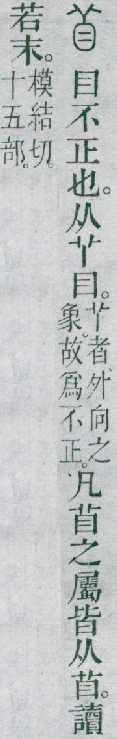 𥄕 目不正也。从𦫳目。𦫳者外向之象。故爲不正。凡𥄕之屬皆从𥄕。讀
若末。模結切。十五部。